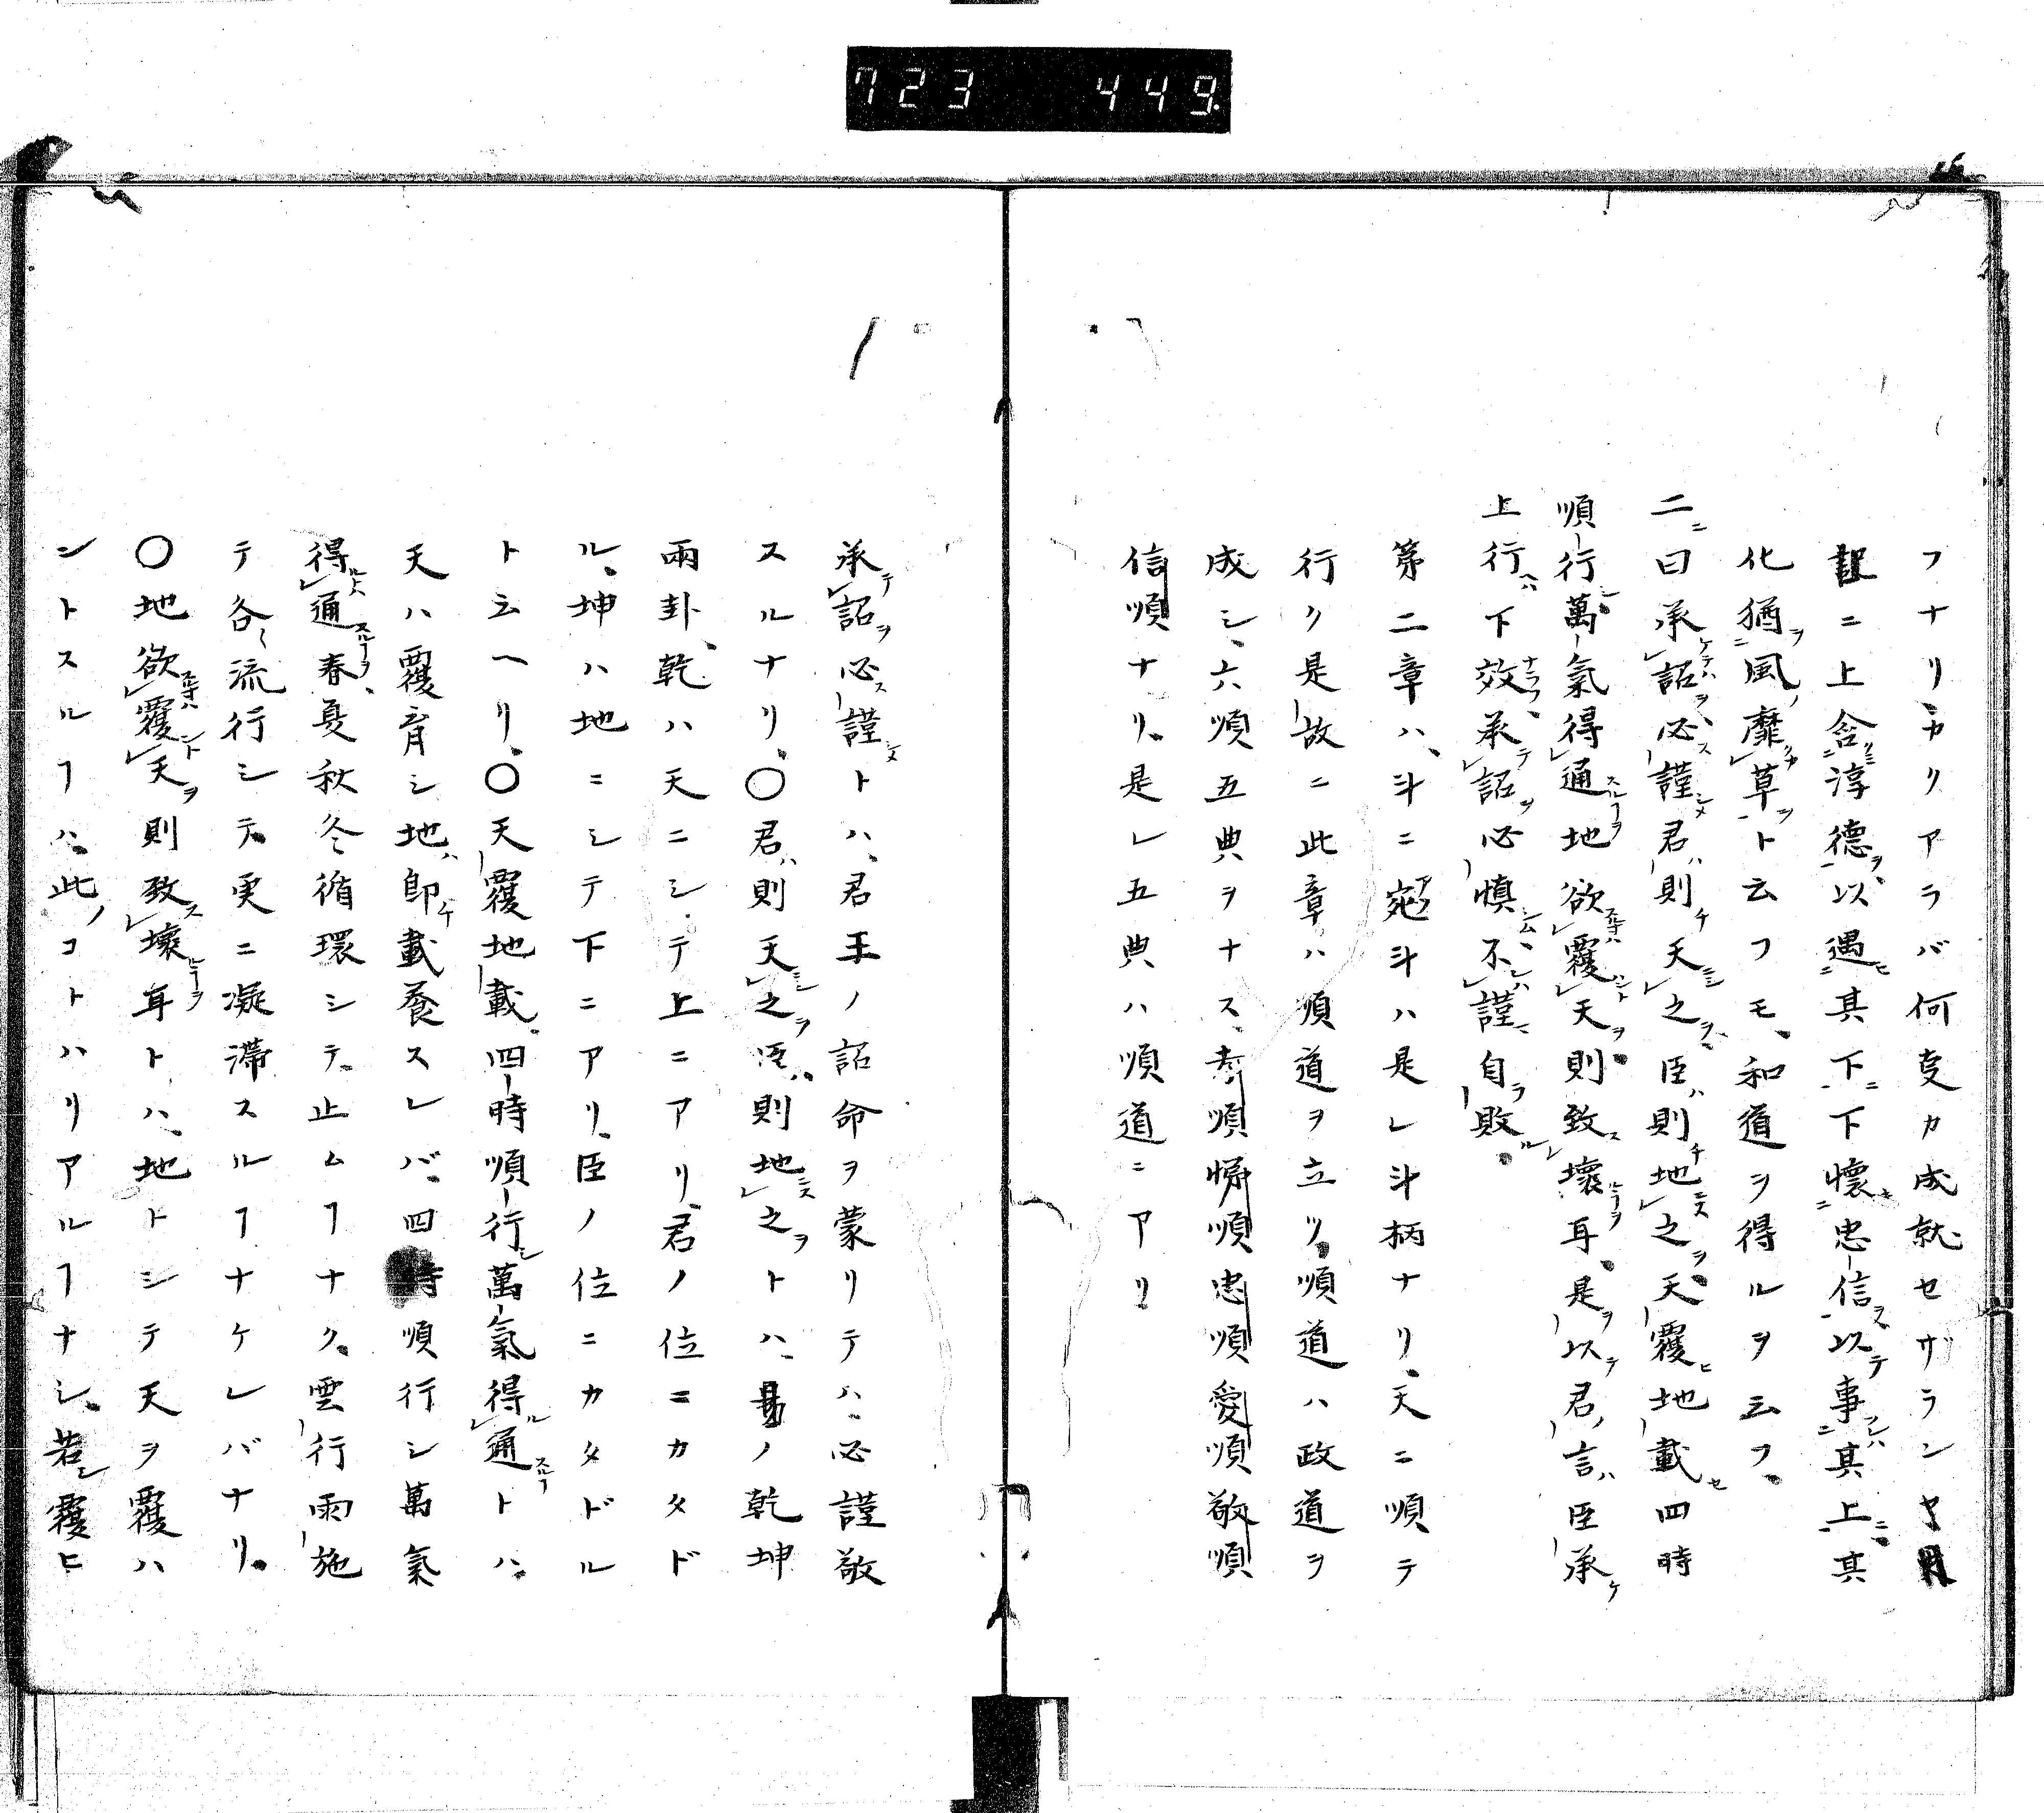 723 449.
フナリ、カリアラバ何支カ成就セザランヤ月
記ニ上含淳德以遇其下下懷忠信以事其上其
化猶風靡草ト云フモ、和道ヲ得ルヲ云フ、
二曰承詔必謹君則天之臣則地之天覆地載四時
順行萬氣得通地欲覆天則致壞耳是以君言臣承
上行下效承詔必慎不謹自敗
第二章ハ、斗ニ宛斗ハ是レ斗柄ナリ、天ニ順テ
行ク是故ニ此章ハ順道ヲ立ツ、順道ハ政道ヲ
成シ、六順五典ヲナス、孝順悌順忠順愛順敬順
信順ナリ、是レ五典ハ順道ニアリ
承詔必謹トハ、君王ノ詔命ヲ蒙リテハ、必謹敬
スルナリ、〇君則天之臣則地之トハ、易ノ乾坤
兩卦、乾ハ天ニシテ上ニアリ、君ノ位ニカタド
ル、坤ハ地ニシテ下ニアリ、臣ノ位ニカタドル
ト云ヘリ、〇天覆地載四時順行萬氣得通トハ、
天ハ覆育シ地即載養スレバ、四時順行シ萬氣
得通春夏秋冬循環シテ、止ムヿナク、雲行雨施
テ各〻流行シテ、更ニ凝滯スルヿナケレバナリ、
〇地欲覆天則致壞耳トハ、地トシテ天ヲ覆ハ
ントスルヿハ、此ノコトハリアルヿナシ、若シ覆ヒ